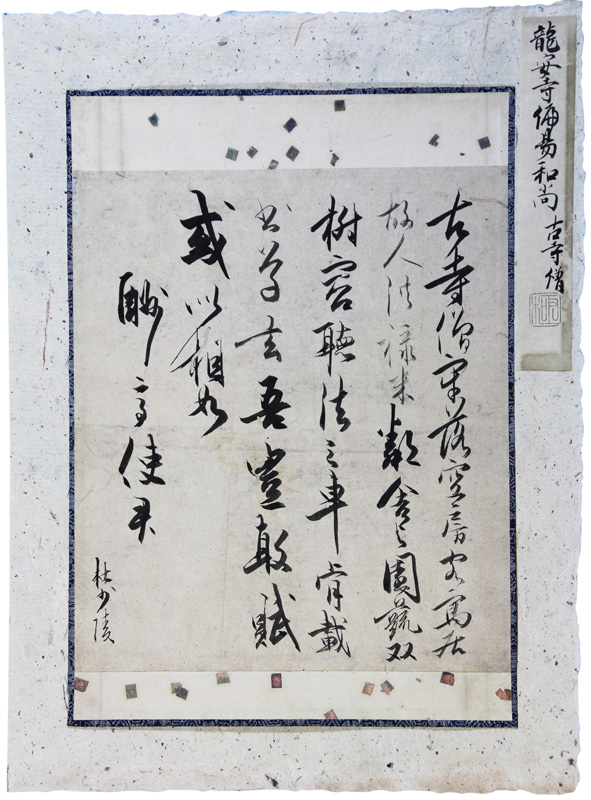 龍安寺偏易和尚 古寺僧
古寺僧牢落空房客寓居
故人供禄米鄰舍与園蔬双
樹容聽法三車肯載
書草玄吾豈敢賦
或似相如
酬高使君
杜少陵